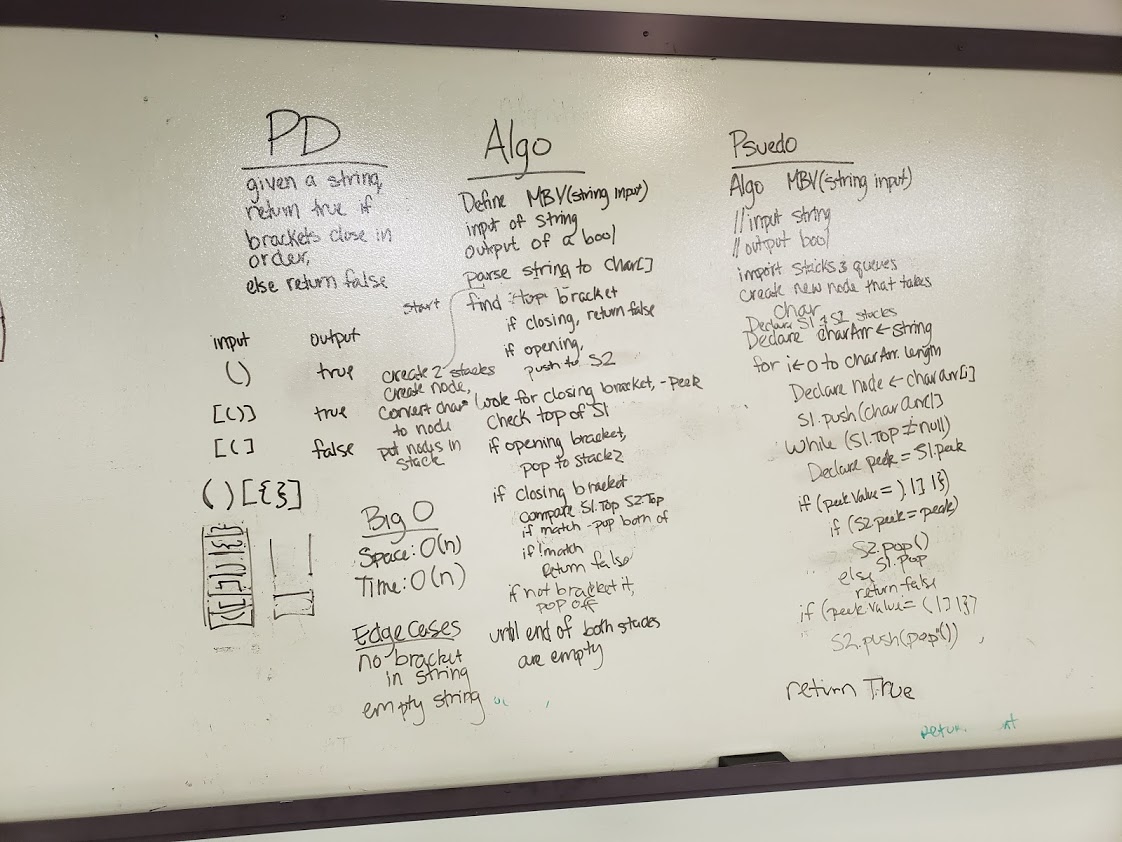 PD
given a string,
return true if
brackets close in
order,
else return false
input output
() true
[()] true
[(] false
()[{}]
Big O
Space: O(n)
Time: O(n)
Edge Cases
no bracket
in string
empty string
start
create 2 stacks
create node,
convert char*
to node
put nodes in
stack
Algo
Define MBV(string input)
input of string
output of a bool
parse string to char[]
find top bracket
if closing, return false
if opening,
push to S2
look for closing bracket, -peek
check top of S1
if opening bracket,
pop to stack2
if closing bracket
compare S1.Top S2.Top
if match - pop both of
if !match
return false
if not bracket it,
pop off
until end of both stacks
are empty
Psuedo
Algo MBV(string input)
//input string
//output bool
import stacks & queues
create new node that takes
char
Declare S1 & S2 stacks
Declare charArr ← string
for i ← 0 to charArr.length
Declare node ← charArr[i]
S1.push(charArr[]
while (S1.Top ≠ null)
Declare peek = S1.peek
if (peek value = ) | ] | })
if (S2.peek = peek)
S2.pop()
S1.pop
else
return false
if (peek.value = ( | ] | })
S2.push(pop())
return True